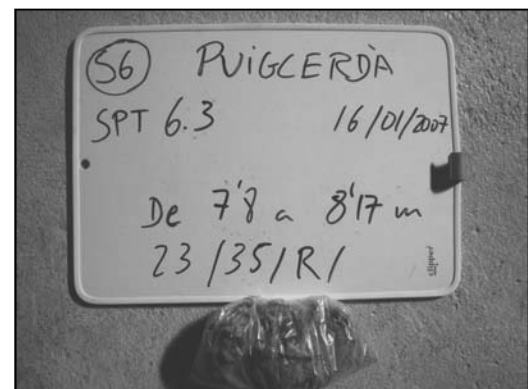 S6 PUIGCERDÀ
SPT 6.3 16/01/2007
De 7'8 a 8'17 m
23/35/R/
slipper